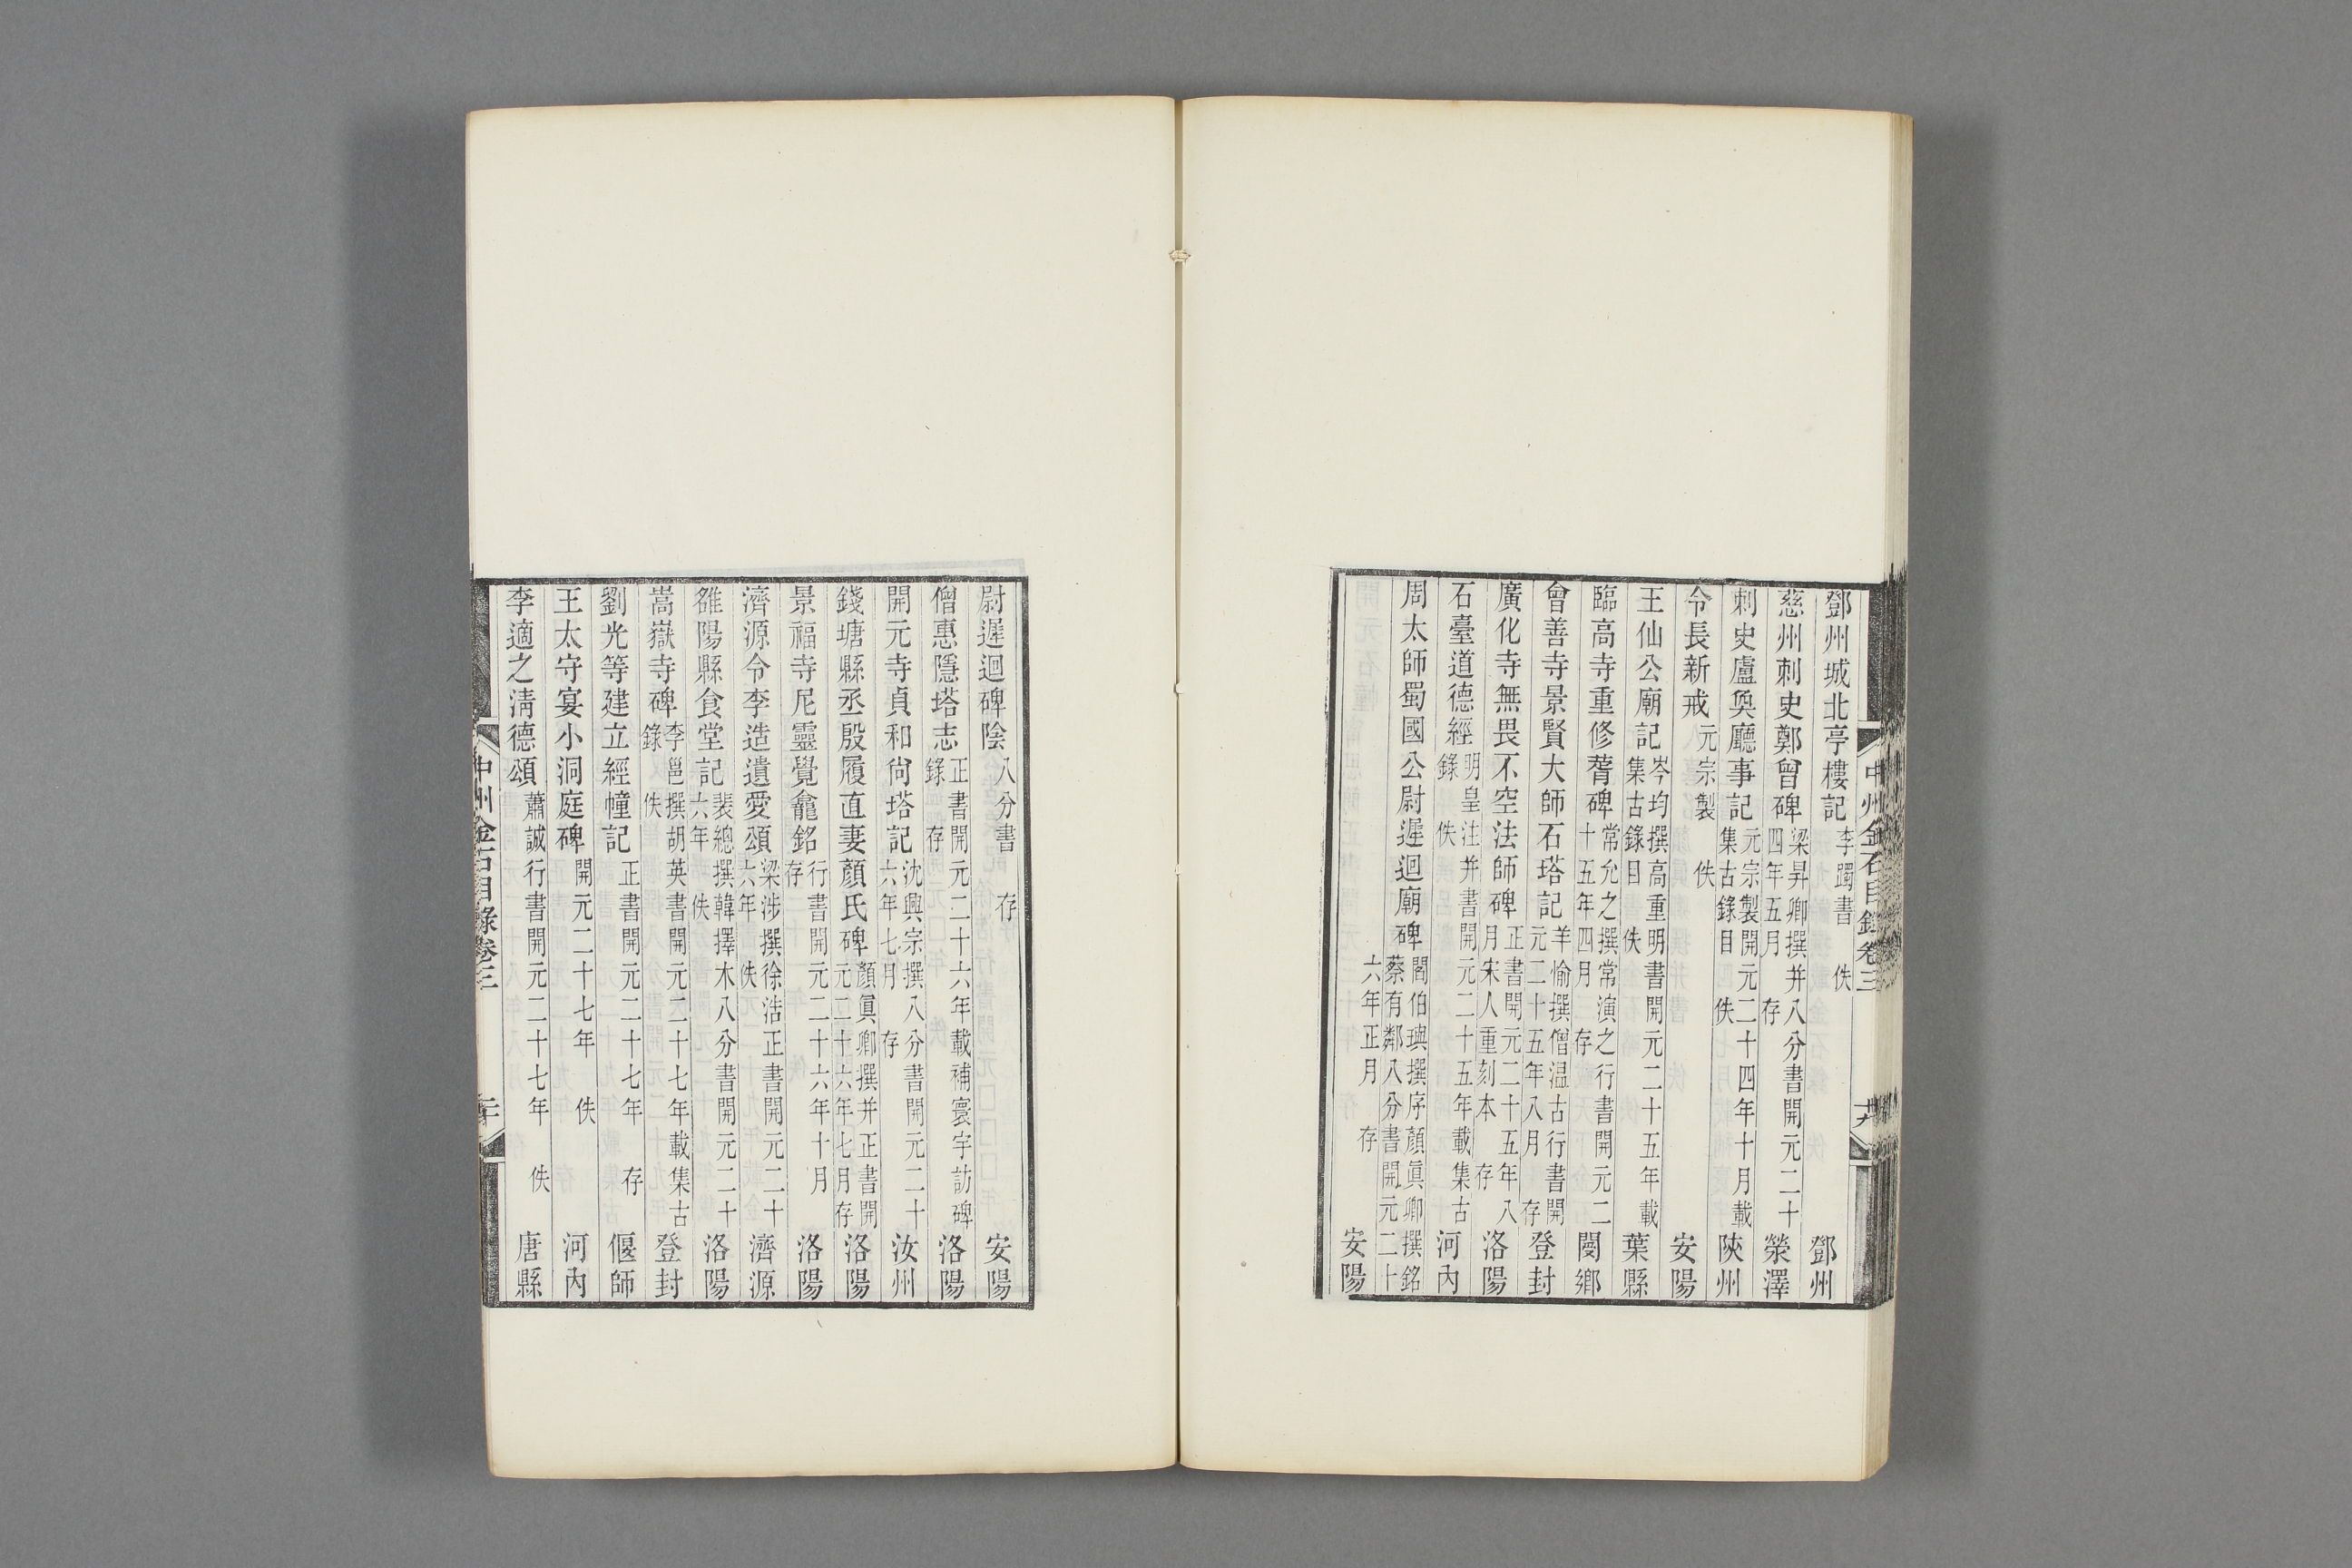 鄧州城北亭樓記李躅書 佚 鄧州
慈州刺史鄭曾碑梁昇卿撰并八分書開元二十四年五月 存 滎澤
刺史盧奐廳事記元宗製開元二十四年十月載集古錄目 佚 陝州
令長新戒元宗製 佚 安陽
王仙公廟記岑均撰高重明書開元二十五年載集古錄目 佚 葉縣
臨高寺重修碑常允之撰常演之行書開元二十五年四月 存 閿鄉
會善寺景賢大師石塔記羊愉撰僧溫古行書開元二十五年八月 存 登封
廣化寺無畏不空法師碑正書開元二十五年八月宋人重刻本 存 洛陽
石臺道德經明皇注并書開元二十五年載集古錄 佚 河內
周太師蜀國公尉遲迴廟碑閻伯璵撰序顏眞卿撰銘蔡有鄰八分書開元二十六年正月 存 安陽
中州金石目錄卷三 十九
尉遲迴碑陰八分書 存 安陽
僧惠隱塔志正書開元二十六年載補寰宇訪碑錄 存 洛陽
開元寺貞和尙塔記沈興宗撰八分書開元二十六年七月 存 汝州
錢塘縣丞殷履直妻顏氏碑顏眞卿撰并正書開元二十六年七月存 洛陽
景福寺尼靈覺龕銘行書開元二十六年十月 存 洛陽
濟源令李造遺愛頌梁涉撰徐浩正書開元二十六年 佚 濟源
雒陽縣食堂記裴總撰韓擇木八分書開元二十六年 佚 洛陽
嵩嶽寺碑李邕撰胡英書開元二十七年載集古錄 佚 登封
劉光等建立經幢記正書開元二十七年 存 偃師
王太守宴小洞庭碑開元二十七年 佚 河內
李適之淸德頌蕭誠行書開元二十七年 佚 唐縣
中州金石目錄卷三 二十